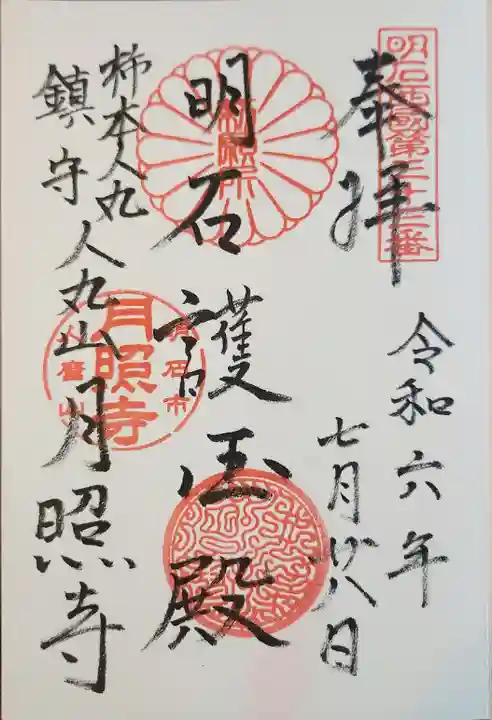 明石西國第三十三番
奉拝
令和六年
七月廿八日
明石
護国殿
柿本人丸
鎮守
人丸山月照寺
月照寺
明石市